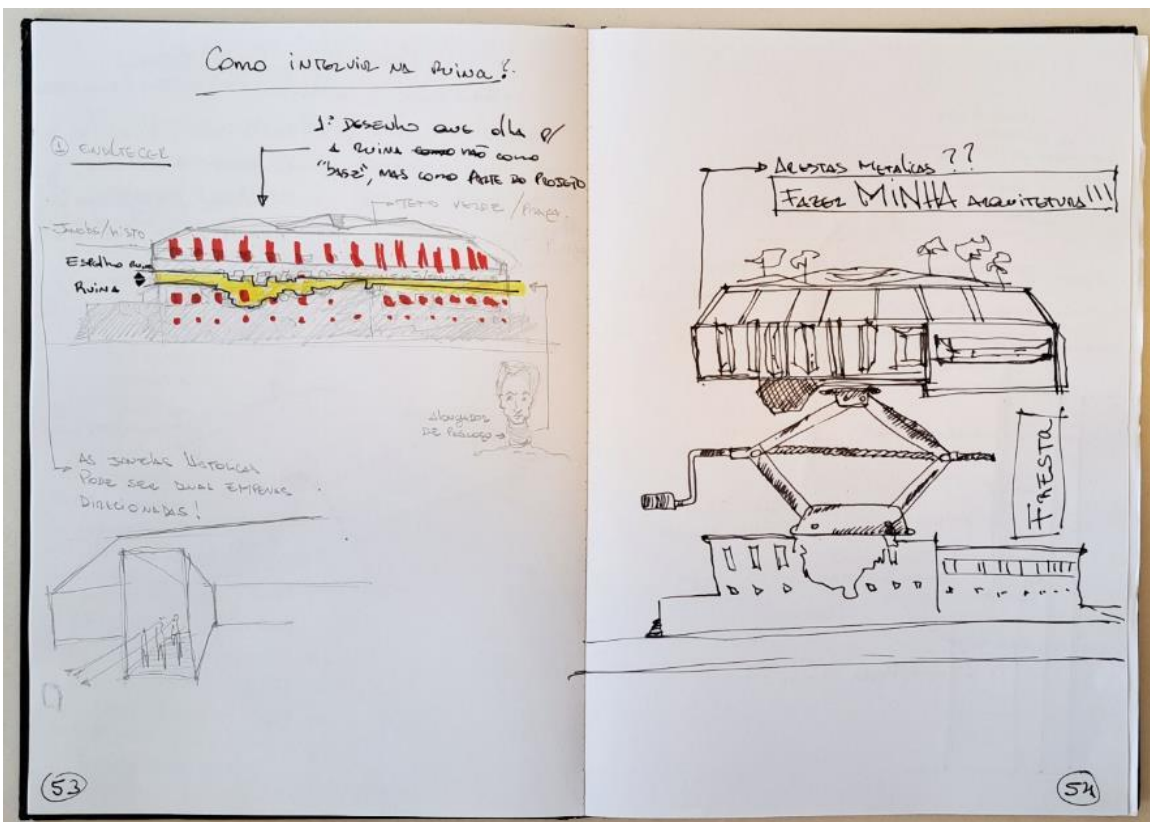 Como intervir na ruína?
① Enaltecer
1º desenho que olha p/
a ruína não como
"base", mas como parte do projeto
Teto verde/praça.
Ruína
Alongador
de pescoço
As janelas históricas
pode ser duas empenas
direcionadas!
53
Arestas metálicas??
Fazer MINHA arquitetura!!!
FRESTA
54